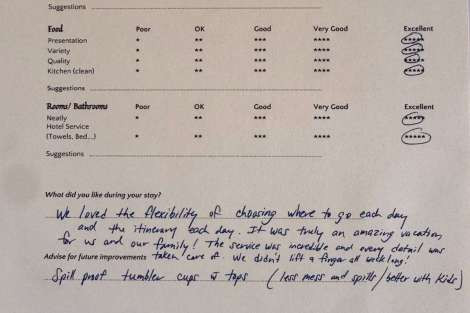 Suggestions
Food Poor OK Good Very Good Excellent
Presentation * ** *** **** *****
Variety * ** *** **** *****
Quality * ** *** **** *****
Kitchen (clean) * ** *** **** *****
Suggestions
Rooms/ Bathrooms Poor OK Good Very Good Excellent
Neatly * ** *** **** *****
Hotel Service
(Towels, Bed...) * ** *** **** *****
Suggestions
What did you like during your stay?
We loved the flexibility of choosing where to go each day
and the itinerary each day. It was truly an amazing vacation
for us and our family! The service was incredible and every detail was
taken care of. We didn't lift a finger all week long!
Advise for future improvements
Spill proof tumbler cups w tops (less mess and spills/better with kids)